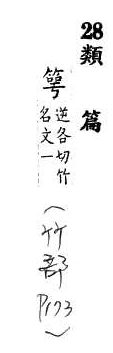 28類篇
逆各切竹
名文一
(竹部P173)